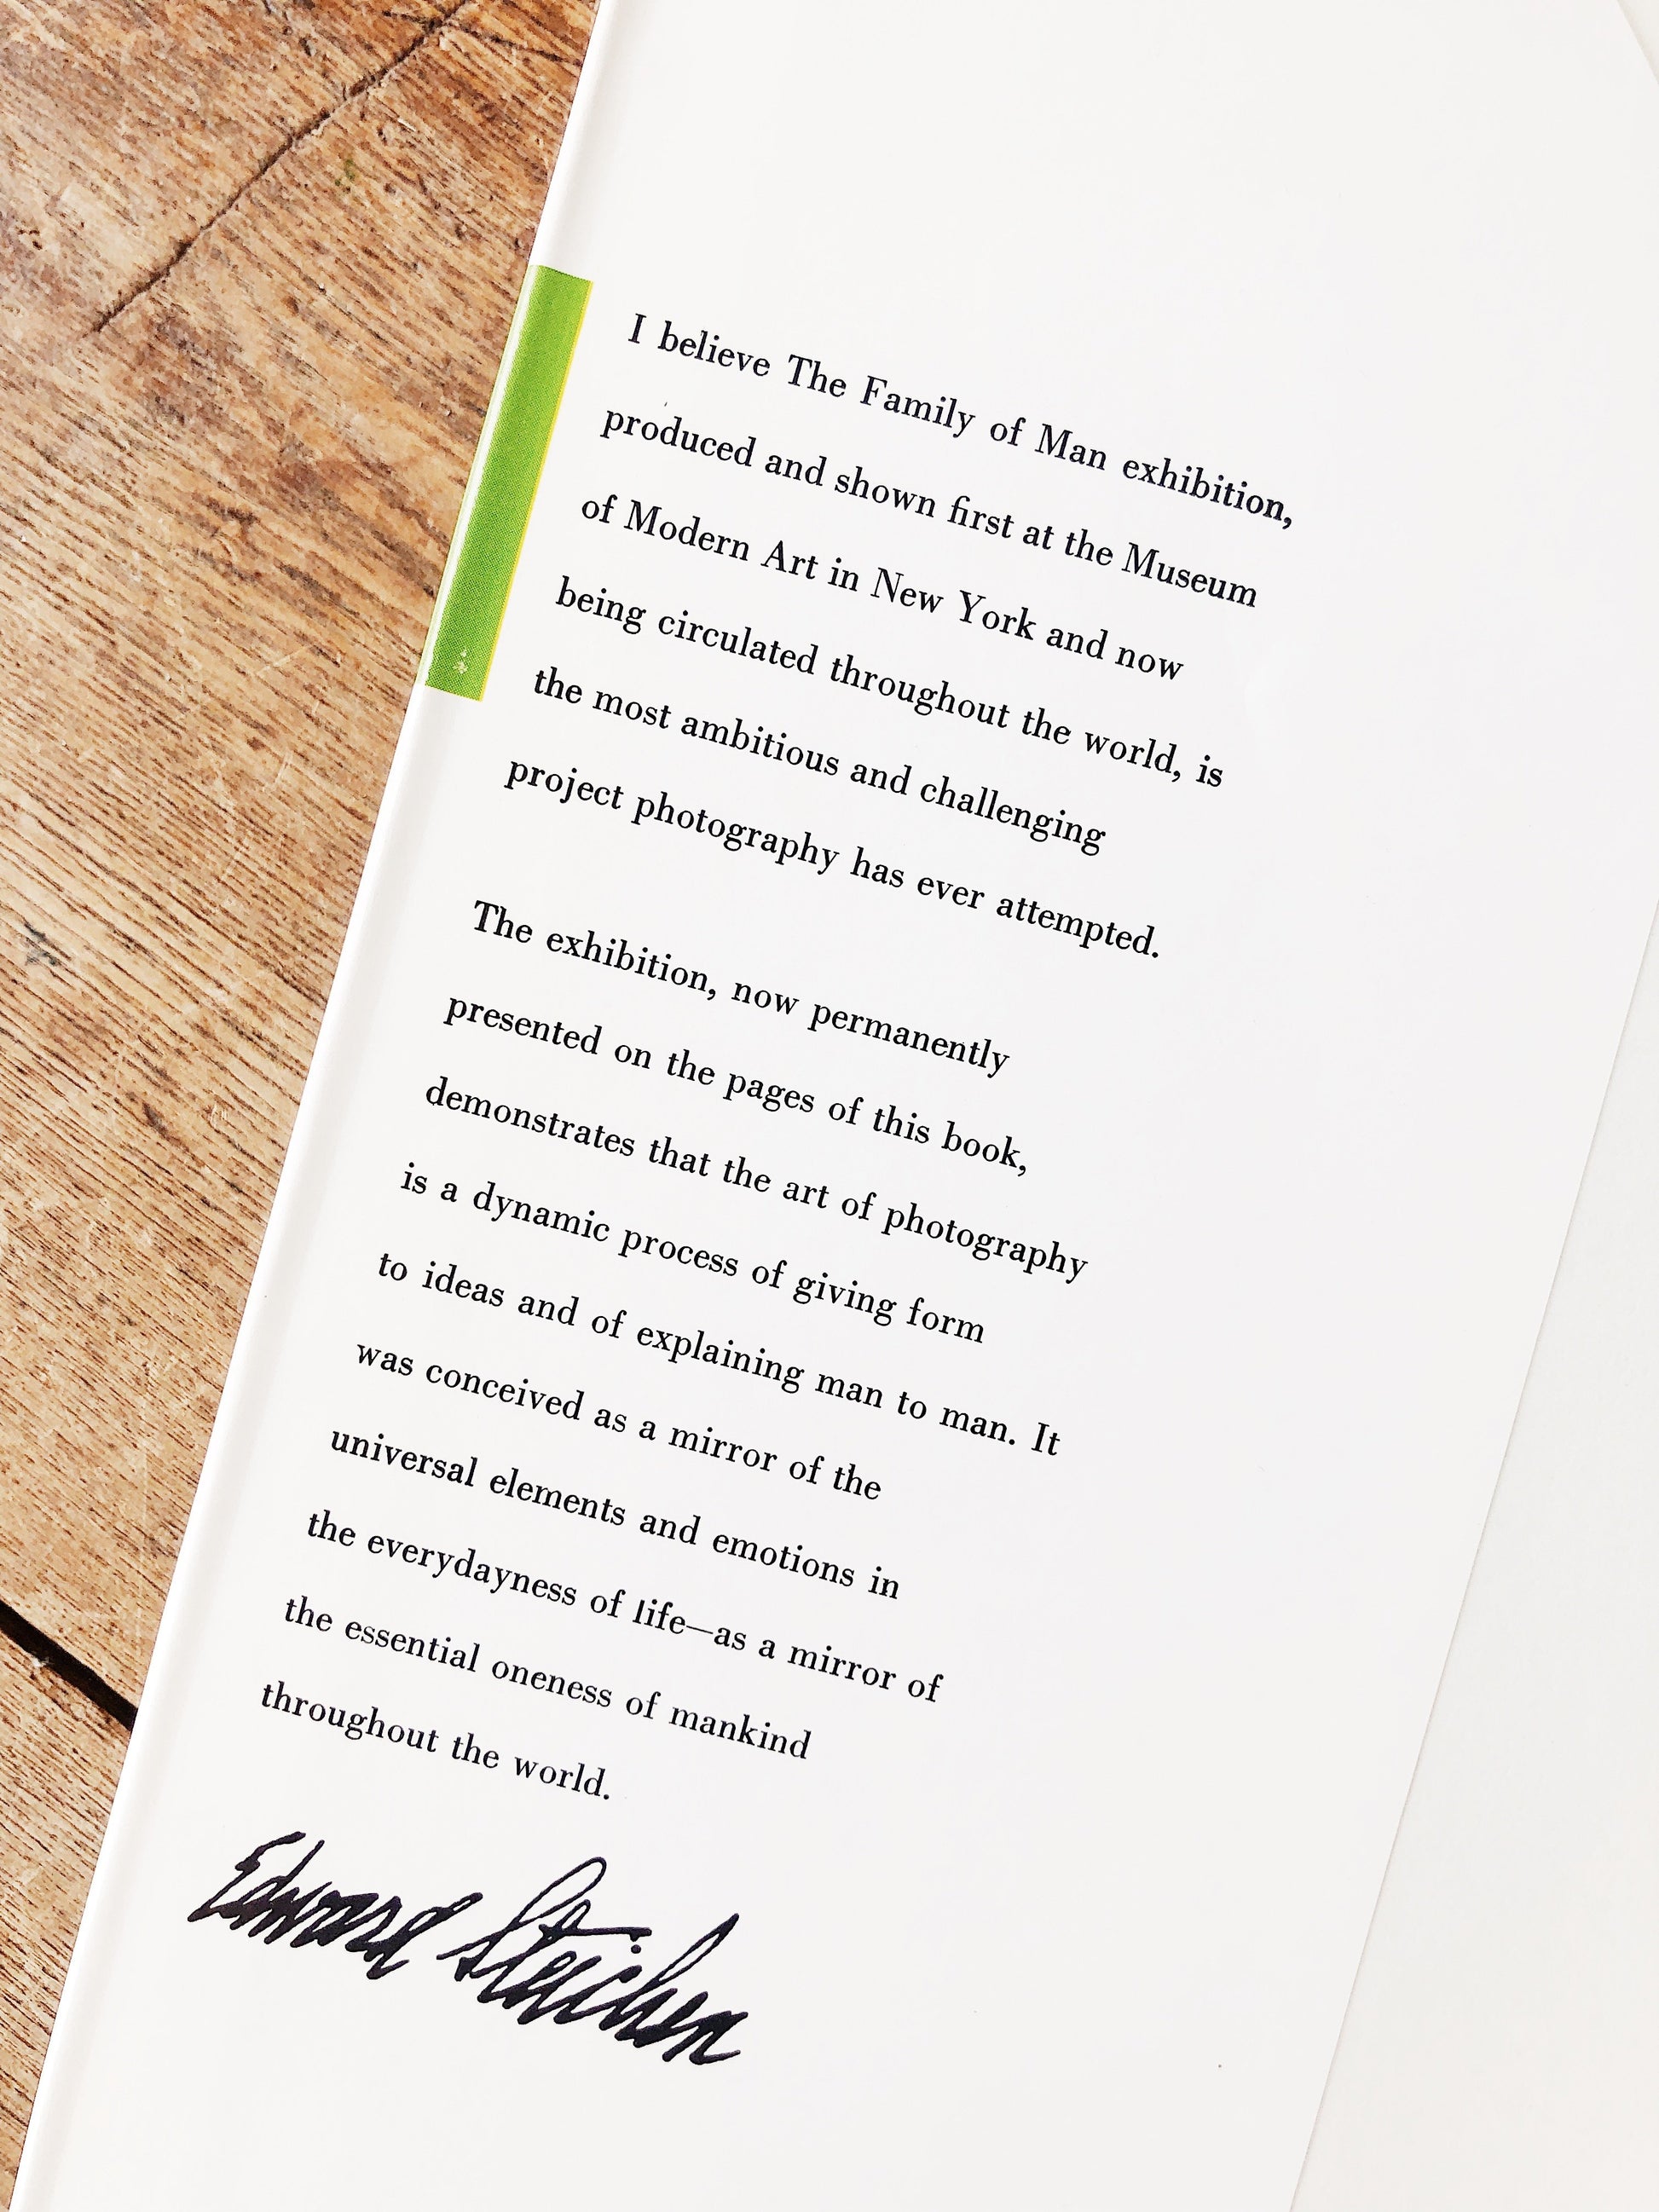 I believe The Family of Man exhibition,
produced and shown first at the Museum
of Modern Art in New York and now
being circulated throughout the world, is
the most ambitious and challenging
project photography has ever attempted.
The exhibition, now permanently
presented on the pages of this book,
demonstrates that the art of photography
is a dynamic process of giving form
to ideas and of explaining man to man. It
was conceived as a mirror of the
universal elements and emotions in
the everydayness of life—as a mirror of
the essential oneness of mankind
throughout the world.
Edward Steichen